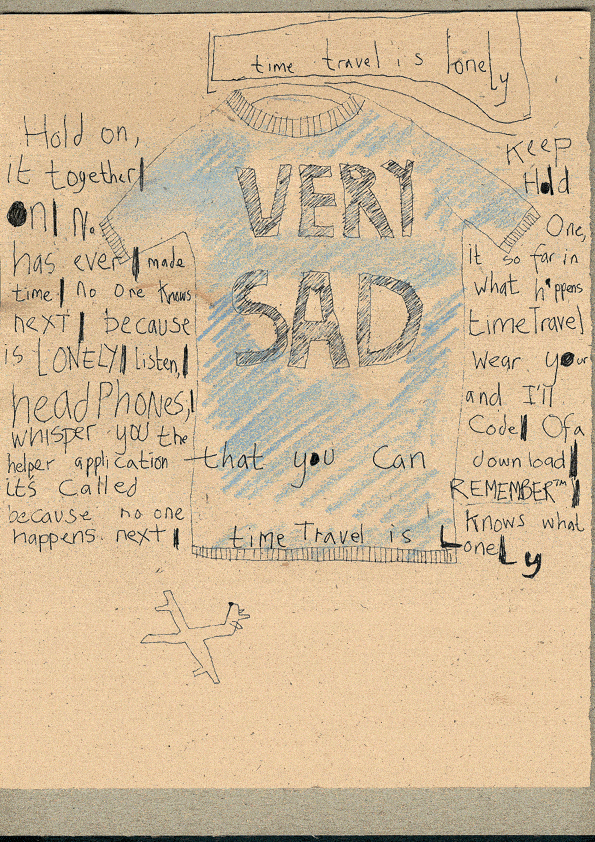 time travel is lonely
Hold on, Keep
VERY
it together Hold
on No One,
has ever made it so far in
time no one knows what happens
SAD
next because time Travel
is LONELY listen, wear your
headPhones, and I'll
whisper you the Code Of a
helper application that you can download
it's called REMEMBER™
because no one knows what
happens next time Travel is LoneLy